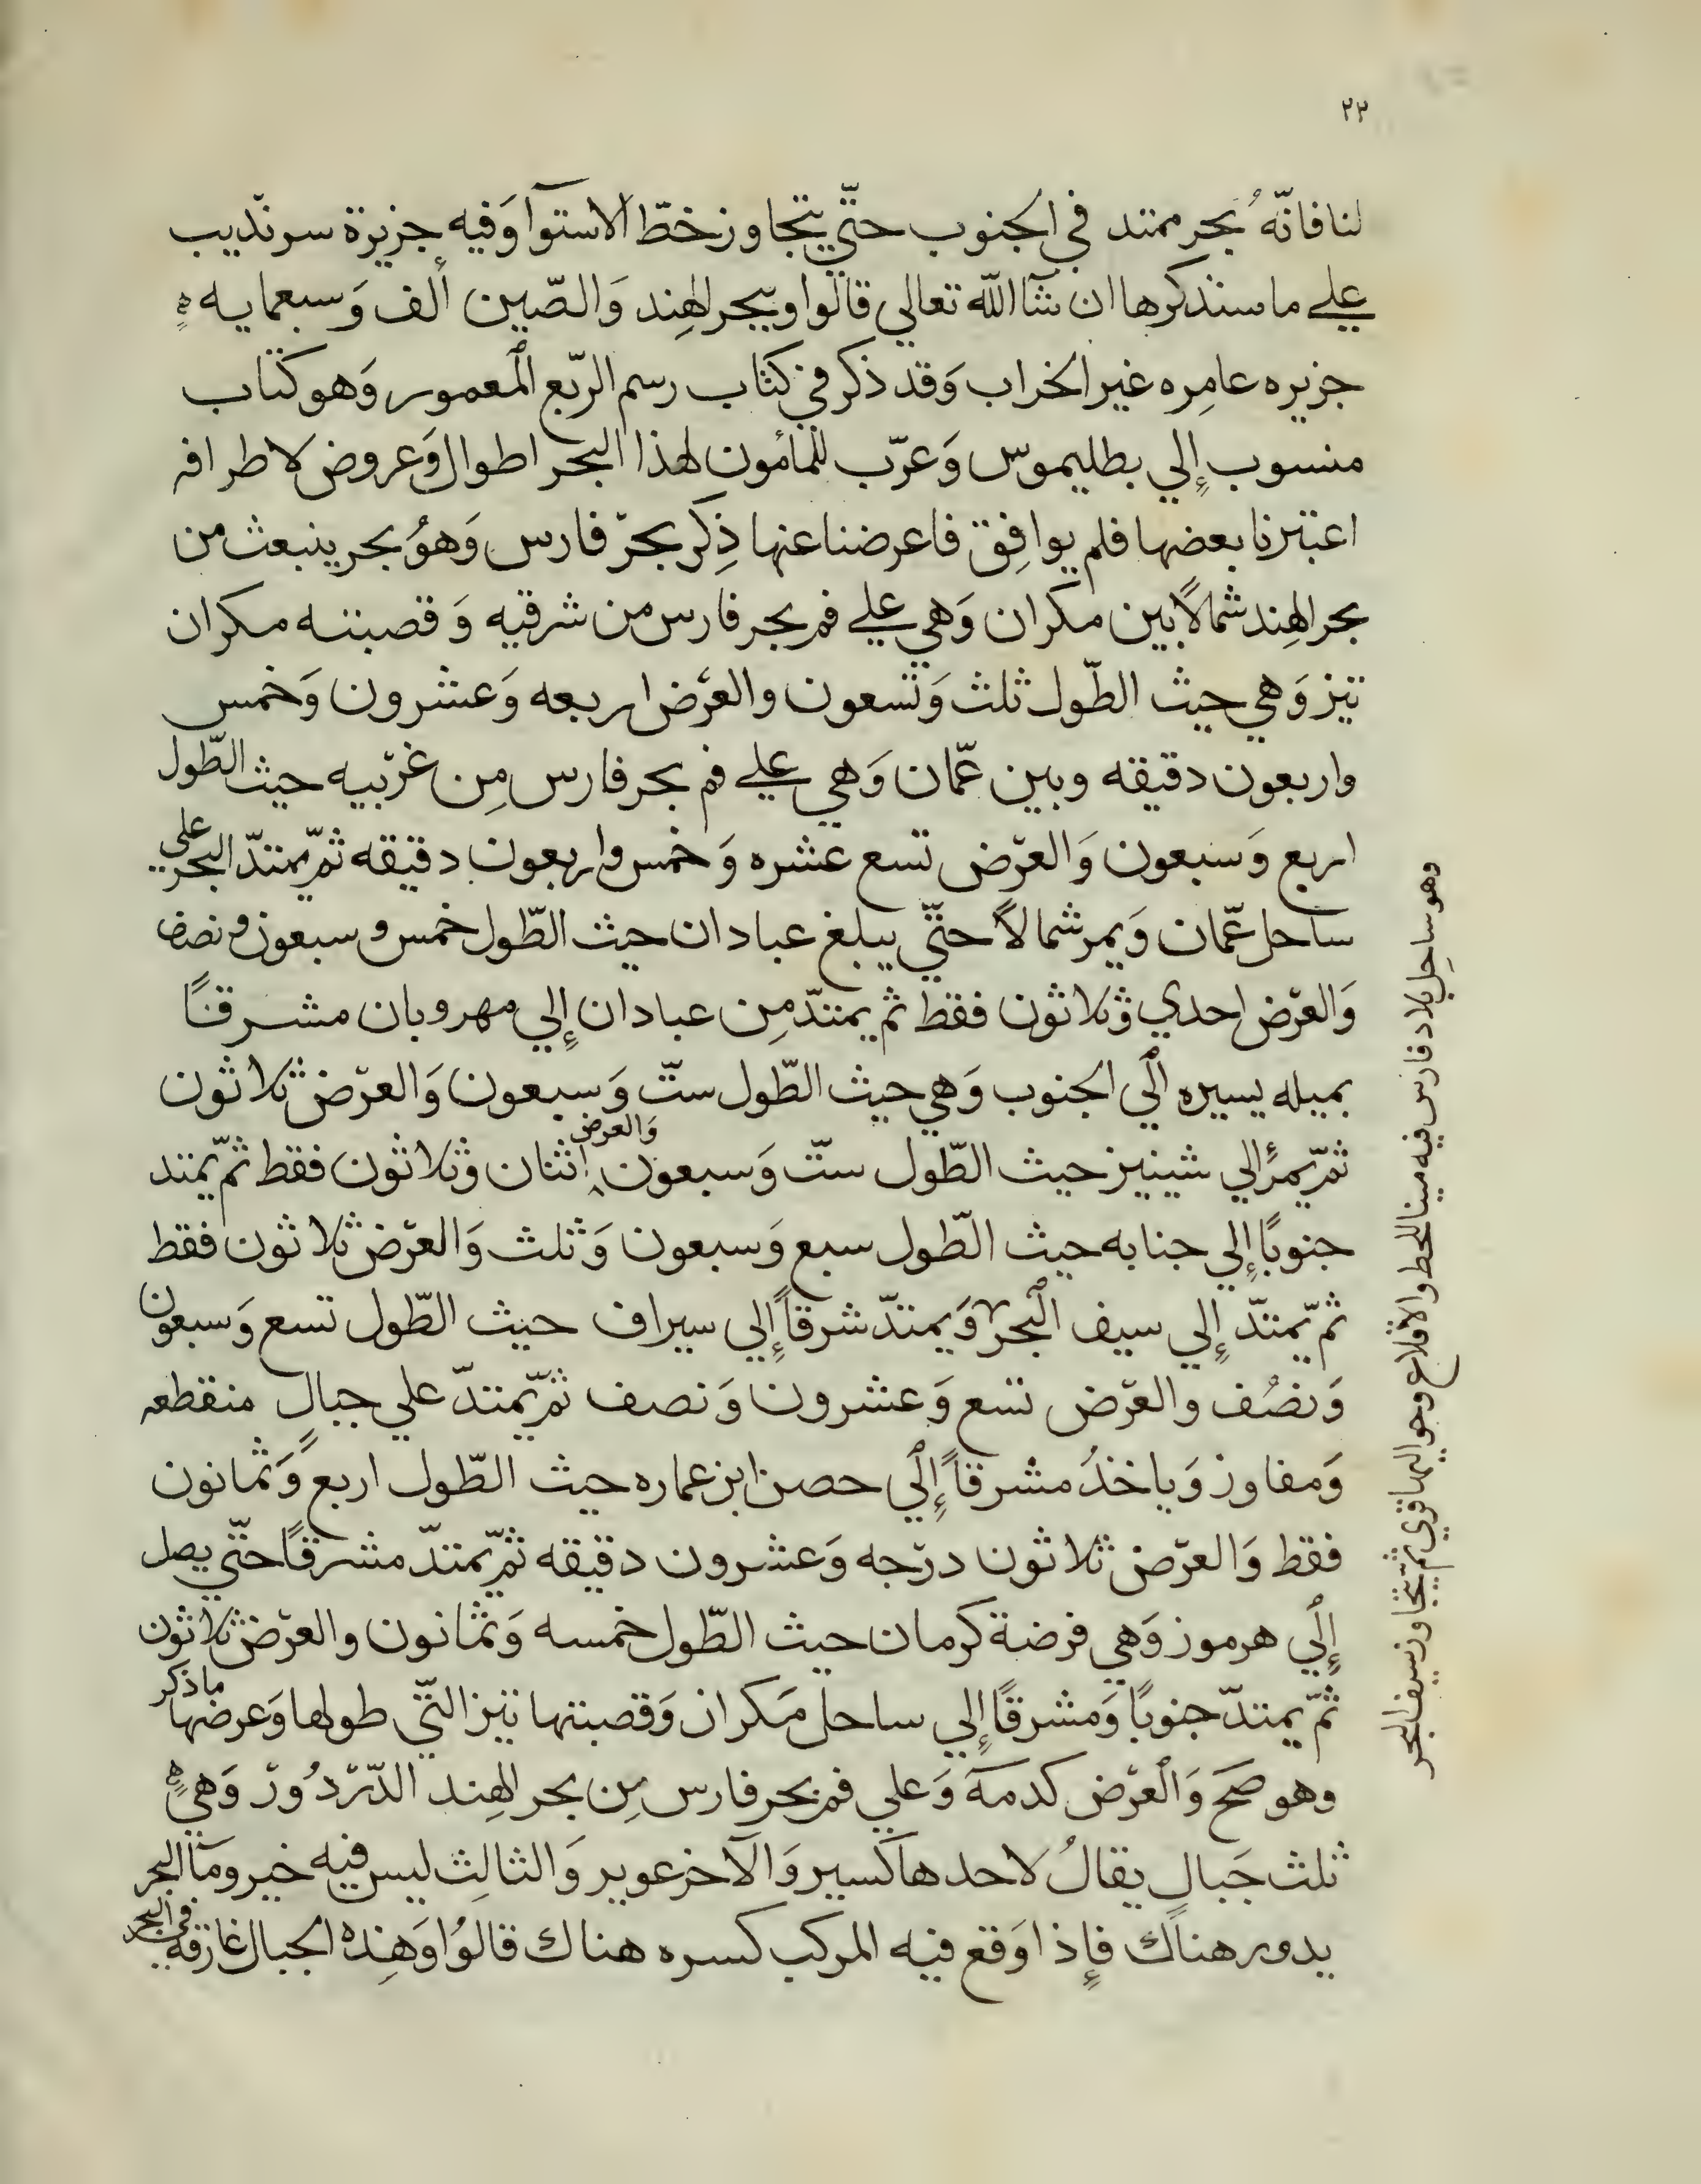 ٢٣
لنا فانّهُ بحر ممتد في الجنوب حتّي يتجاوز خطّ الاستوآ وَفيه جزيرة سرنديب
علي ما سنذكرها ان شآ اللّه تعالي قالوا وببحر الهِند وَالصّين ألف وَسبعمايه ه
جزيره عامِره غير الخراب وَقد ذكر في كتاب رسم الرّبع المعمور وَهو كتاب
منسوب إلي بطليموس وَعرّب للمأمون لهذا البحر اطوال وَعروض لاطرافه
اعتبرنا بعضها فلم يوافِق فاعرضنا عنها ذِكر بحرّ فارس وَهوُ بحر ينبعث من
بحر الهِند شمالاً بين مكران وَهي علي فم بحر فارس من شرقيه وَقصبته مكران
تيز وَهي حيث الطّول ثلث وَتسعون والعرّض اربعه وَعشرون وَخمس
واربعون دقيقه وبين عمّان وَهي علي فم بحر فارس مِن غرّبيه حيث الطّول
اربع وَسبعون وَالعرّض تسع عشره وَخمس واربعون دقيقه ثمّ يمتدّ البحر علي
ساحل عمّان وَيمر شمالاً حتّي يبلغ عبادان حيث الطّول خمس و سبعون و نصف
وَالعرّض احدي وثلاثون فقط ثم يمتدّ مِن عبادان إلي مهروبان مشرقاً
بميله يسيره الي الجنوب وَهي حيث الطّول ستّ وَسبعون وَالعرّض ثلاثون
ثمّ يمرّ إلي شينيز حيث الطّول ستّ وَسبعون وَالعرض اثنان وثلاثون فقط ثمّ يمتد
جنوبًا إلي جنابه حيث الطّول سبع وَسبعون وَثلث وَالعرّض ثلاثون فقط
ثم يّمتدّ إلي سيف البحر وَيمتدّ شرقاً إلي سيراف حيث الطّول تسع وَسبعون
وَنصُف والعرّض تسع وَعشرون وَنصف ثمّ يّمتدّ علي جبالٍ منقطعه
وَمفاوز وَياخذُ مشرقاً إلي حصن ابن عماره حيث الطّول اربع وَثمانون
فقط وَالعرّض ثلاثون درّجه وَعشرون دقيقه ثمّ يّمتدّ مشرقاً حتّي يصل
إلي هرموز وَهي فرضة كرمان حيث الطّول خمسه وَثمانون والعرّض ثلاثون
ثمّ يمتدّ جنوبًا وَمشرقًا إلي ساحل مَكران وَقصبتها تيز التّي طولها وَعرضها ما ذكر
وهو صَحَ وَالعرّض كدمهَ وَعلي فم بحر فارس مِن بحر الهِند الدّرّدُورّ وَهيٍ ه
ثلث جَبالٍ يقالُ لاحدها كسير وَالآخر عوير وَالثالِث ليس فيه خير ومآ البحر
يدور هناك فإذا وَقع فيه المركب كسره هناك قالوُا وَهِذه الجبال غارقه في البحر
وهو ساحِل بلاد فارس فيه مينا للحط والاقلاع وحواليها قري ثم يتجاوز سيف البحر